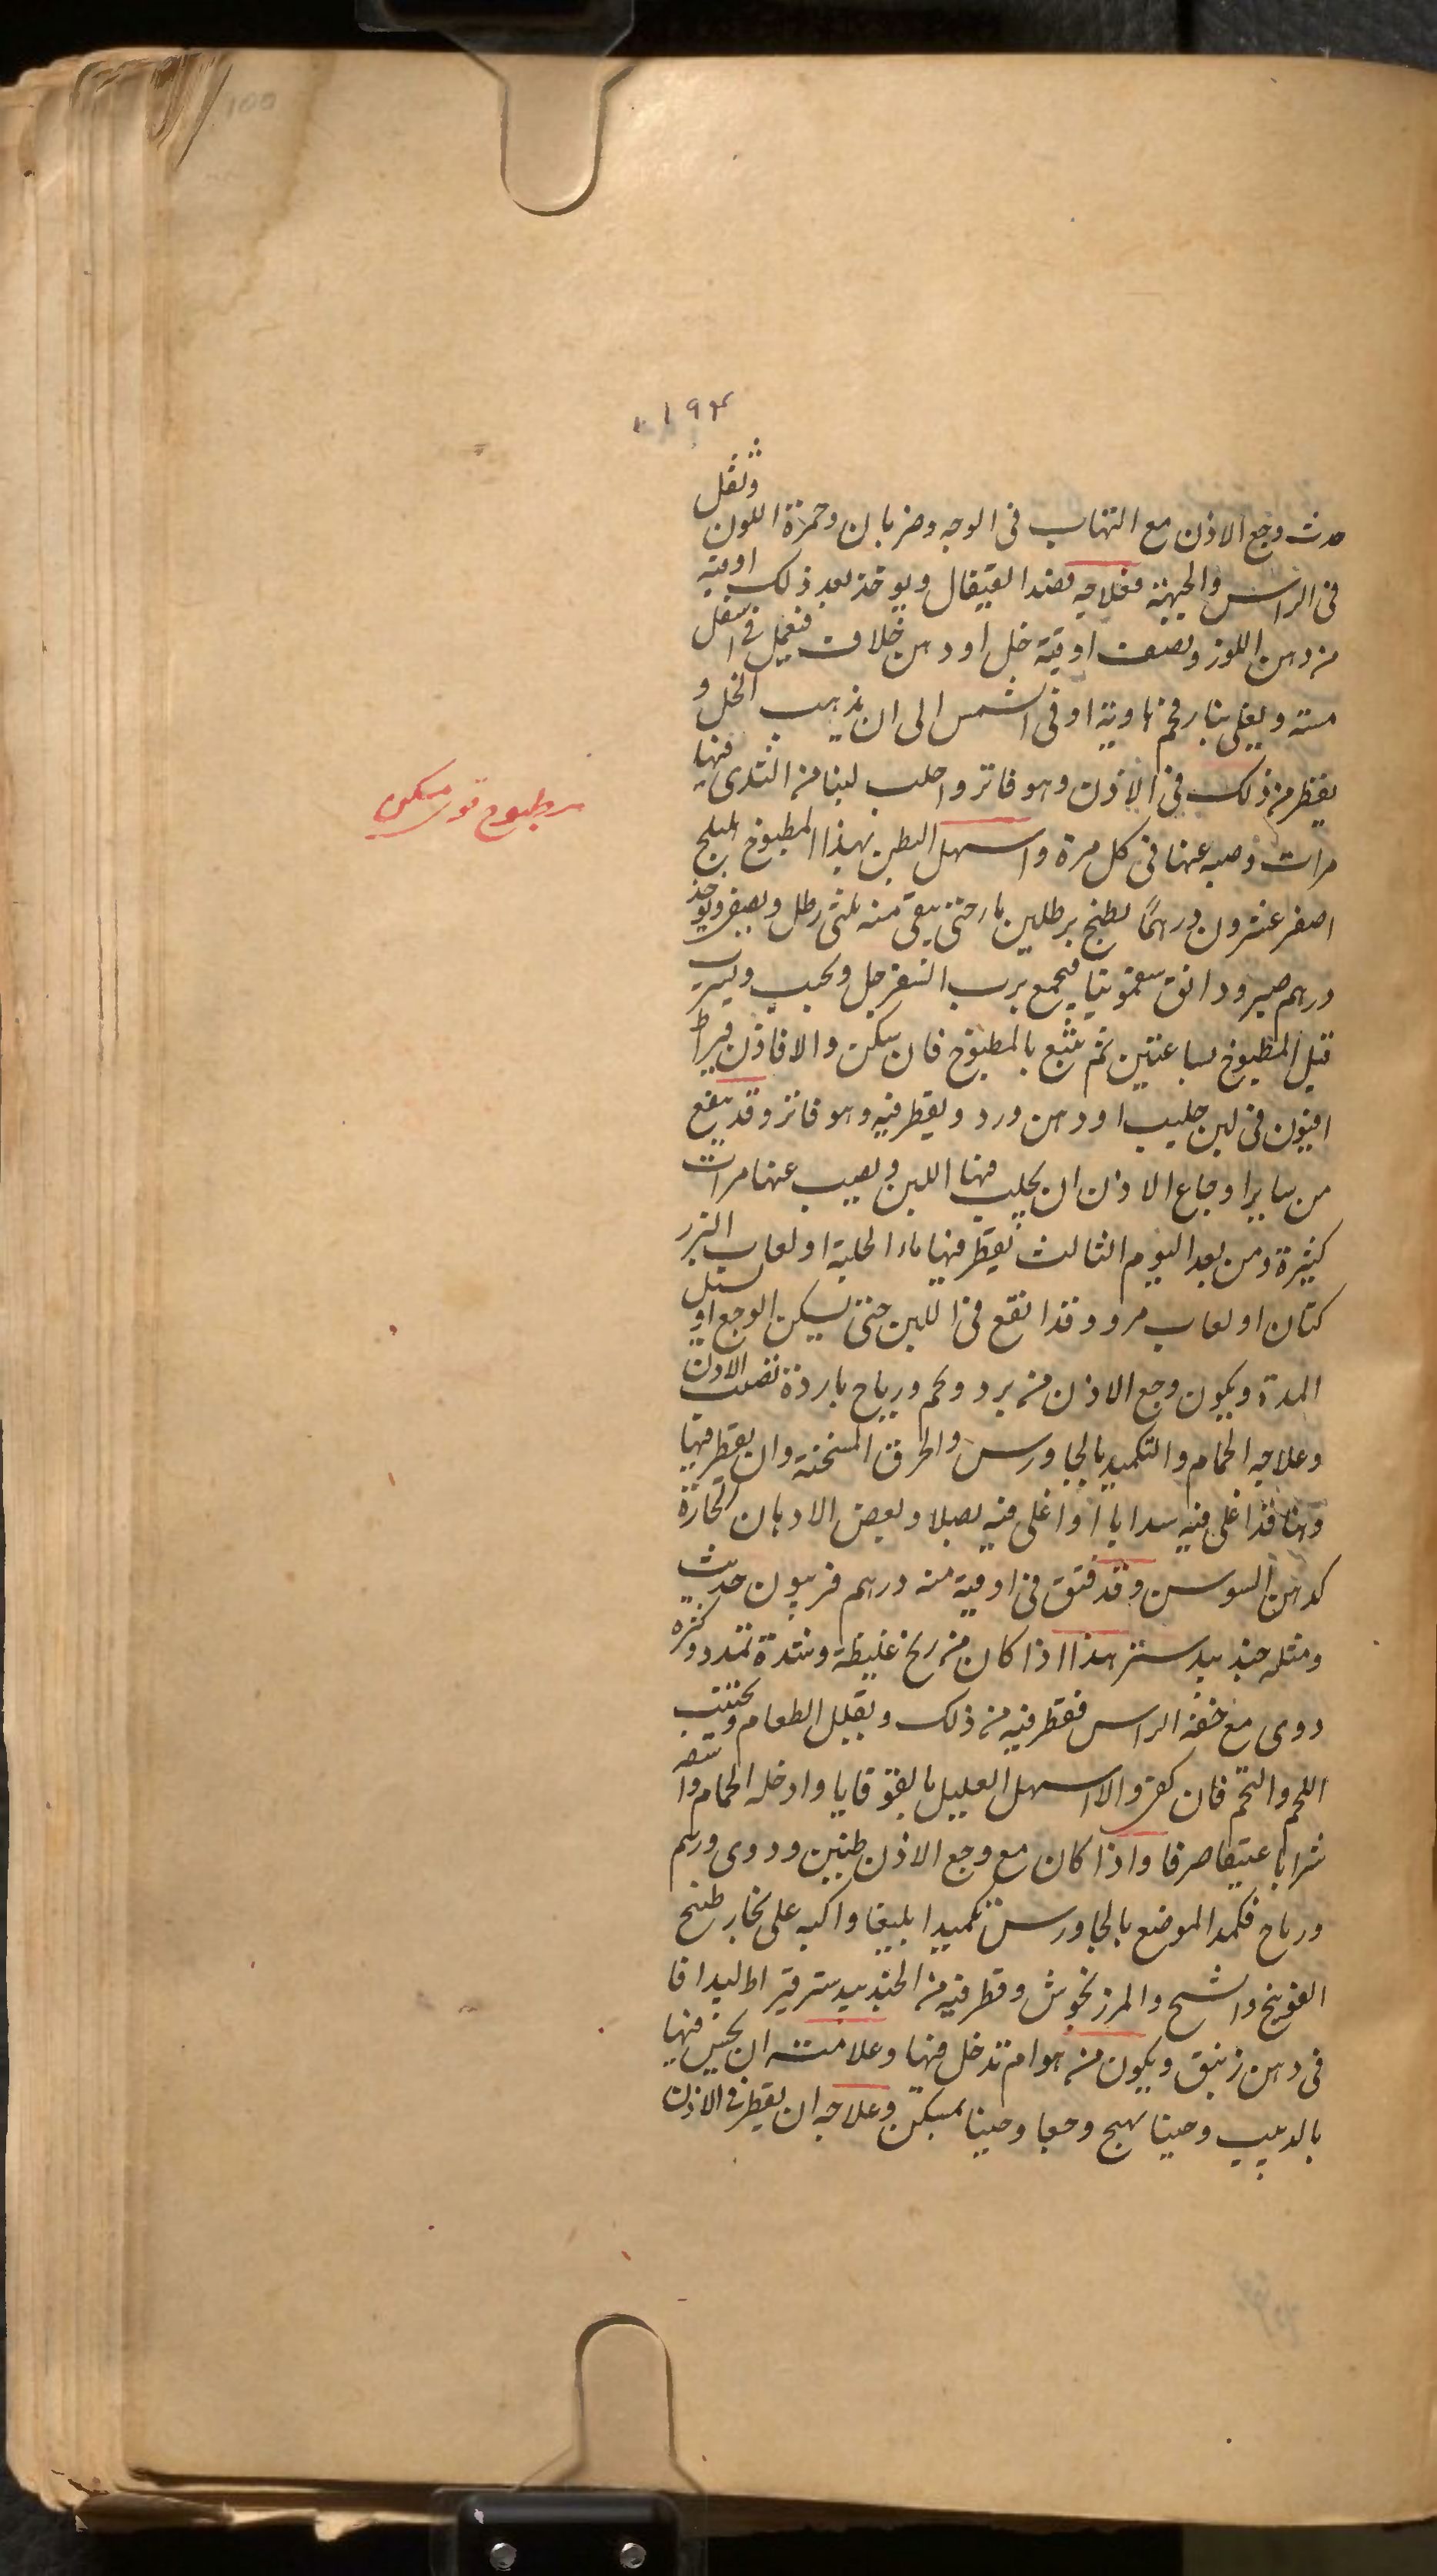 ١٩٣
حدث وجع الاذن مع التهاب فى الوجه وضربان وحمرة اللون وثقل
فى الراس والجبهة فعلاجه فصد القيفال ويوخذ بعد ذلك اوقية
من دهن اللوز ونصف اوقية خل او دهن خلاف فيعمل فى اسفل
مسته ويغلى بنار فحم هاوية او فى الشمس الى ان يذهب الخل و
يقطر من ذلك فى الاذن وهو فاتر واحلب لبنا من الثدى فيها
مرات وصبه عنها فى كل مرة واسهل البطن بهذا المطبوخ اهليلج
اصفر عشرون درهمًا يطبخ برطلين ماء حتى يبقى منه ثلثى رطل ويصفى ويوخذ
درهم صبر ودانق سقمونيا فيجمع برب السفرجل ويحبب ويشرب
قبل المطبوخ بساعتين ثم يتبع بالمطبوخ فان سكن والا فاذن قيراط
افيون فى لبن حليب او دهن ورد ويقطر فيه وهو فاتر وقد ينفع
من ساير اوجاع الاذن ان يحلب فيها اللبن ويصب عنها مرات
كثيرة ومن بعد اليوم الثالث يقطر فيها ماء الحلبة او لعاب البزر
كتان او لعاب مرو وقد انقع فى اللبن حتى يسكن الوجع او تسيل
المدة ويكون وجع الاذن من برد ولحم ورياح باردة تضعف الاذن
وعلاجه الحمام والتكميد بالجاورس والخرق المسخنة وان يقطر فيها
دهنا قد اغلى فيه سدابا او اغلى فيه بصلا وبعض الادهان الحارة
كدهن السوسن وقد فتق فى اوقية منه درهم فربيون حديث
ومثله جندبيدستر هذا اذا كان من ريح غليظة وشدة تمدد وكثره
دوى مع خفة الراس فقطر فيه من ذلك ويقلل الطعام ويجتنب
اللحم والتخم فان كفى والا اسهل العليل بالقوقايا وادخله الحمام واسقه
شرابا عتيقا صرفا واذا كان مع وجع الاذن طنين ودوى ورسم
ورياح فكمد الموضع بالجاورس تكميدا بليغا واكبه على بخار طبخ
الفوتنج والشيح والمرزنجوش وقطر فيه من الجندبيدستر قيراط ليدافا
فى دهن زنبق ويكون من هوام تدخل فيها وعلامته ان يحس فيها
بالدبيب وحينا يهيج وجعا وحينا يسكن وعلاجه ان يقطر فى الاذن
مطبوخ قوى مسكن